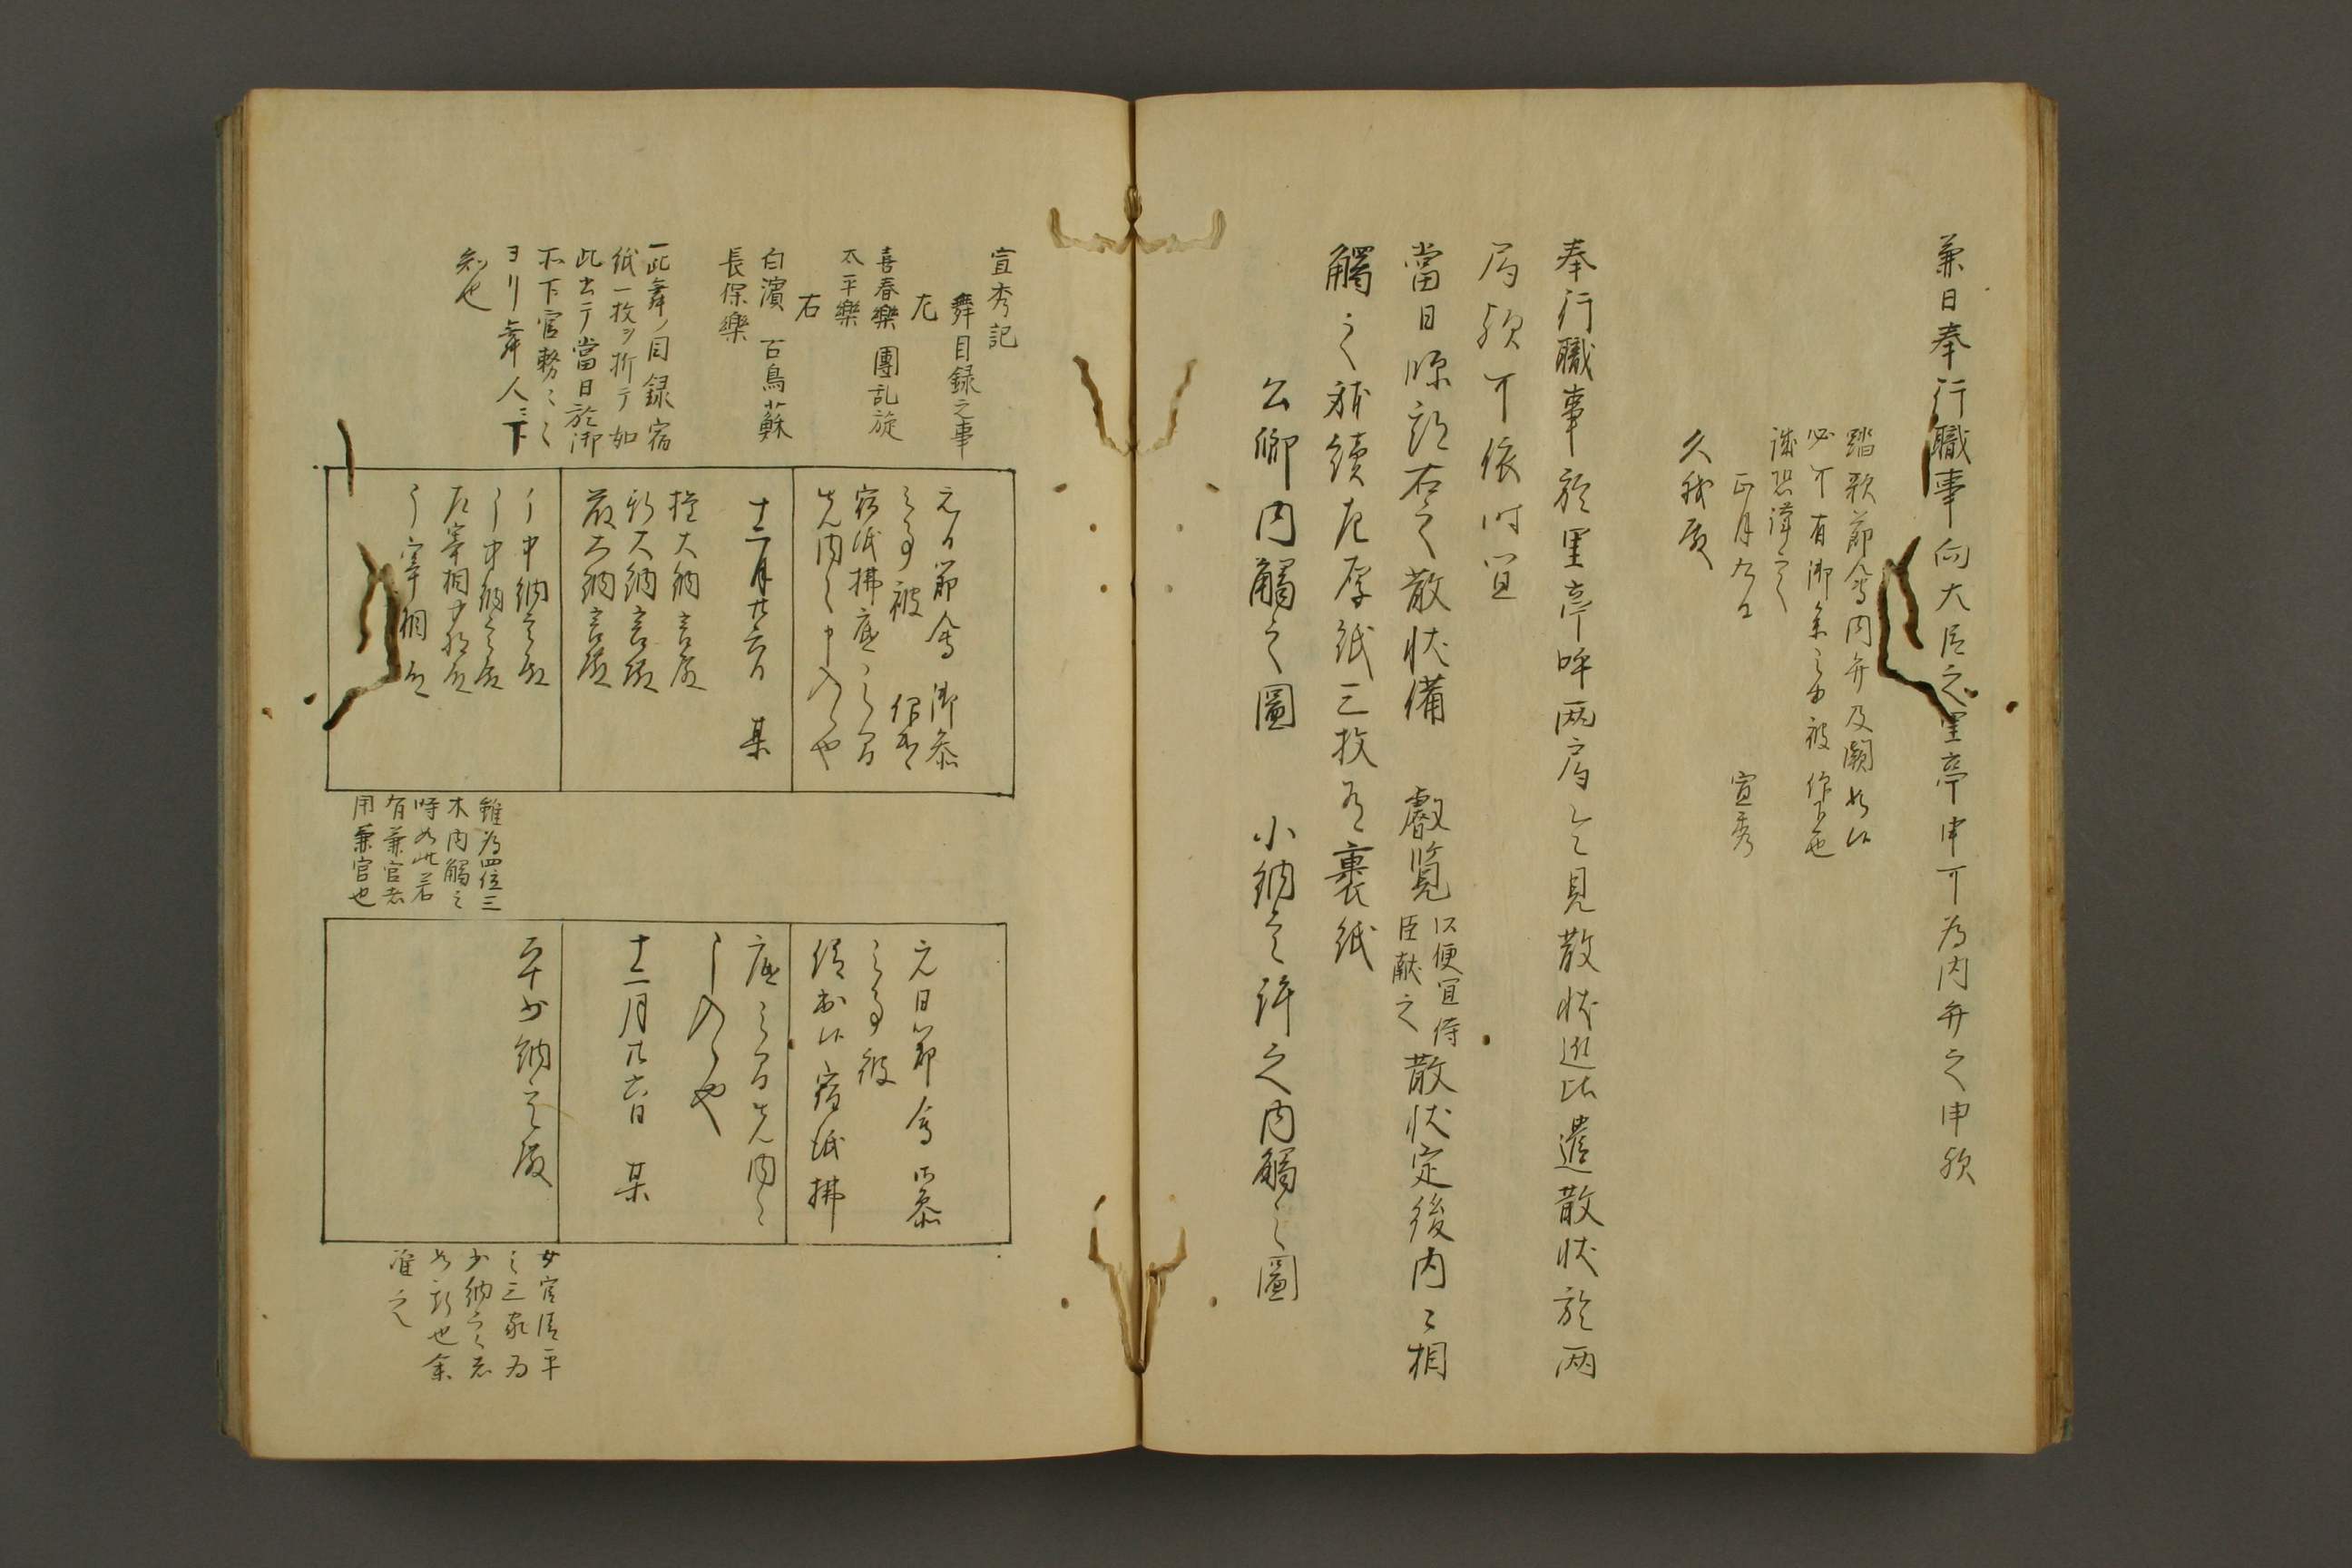 兼日奉行職事向大臣之里亭申可為内弁之申欤
踏歌節會内弁及闕如候
必可有御参之由被仰下也
誠恐謹言
正月九日　宣秀
久我殿
奉行職事於里亭呼両局令見散状近比遣散状於両
局欤可依時宜
當日頭右之散状備　叡覧
以便宜侍
臣献之
散状定後内々相
觸之続左厚紙三枚有裹紙
公卿内觸之圖　小納言許之内觸之圖
宣秀記
舞目録之事
左
喜春樂　團乱旋
太平樂
右
白濱　百鳥蘇
長保樂
一此舞ノ目録宿
紙一枚ヲ折テ如
此出テ當日於御
下官務
ヨリ舞人ニ下
知也
元日節會御参
之事被　仰出
宿紙拂底之間
先内々申入候也
十二月廿六日　某
権大納言殿
新大納言殿
大納言殿
中納言殿
中納言殿
左宰相中将殿
宰相殿
雖為四位三
木内觸之
時如此若
有兼官者
用兼官也
元日節會御参
之事被
仰出候宿紙拂
底之間先内々
申入候也
十二月廿六日　某
平少納言殿
女官清平
之三家為
少納言者
如新也余
准之